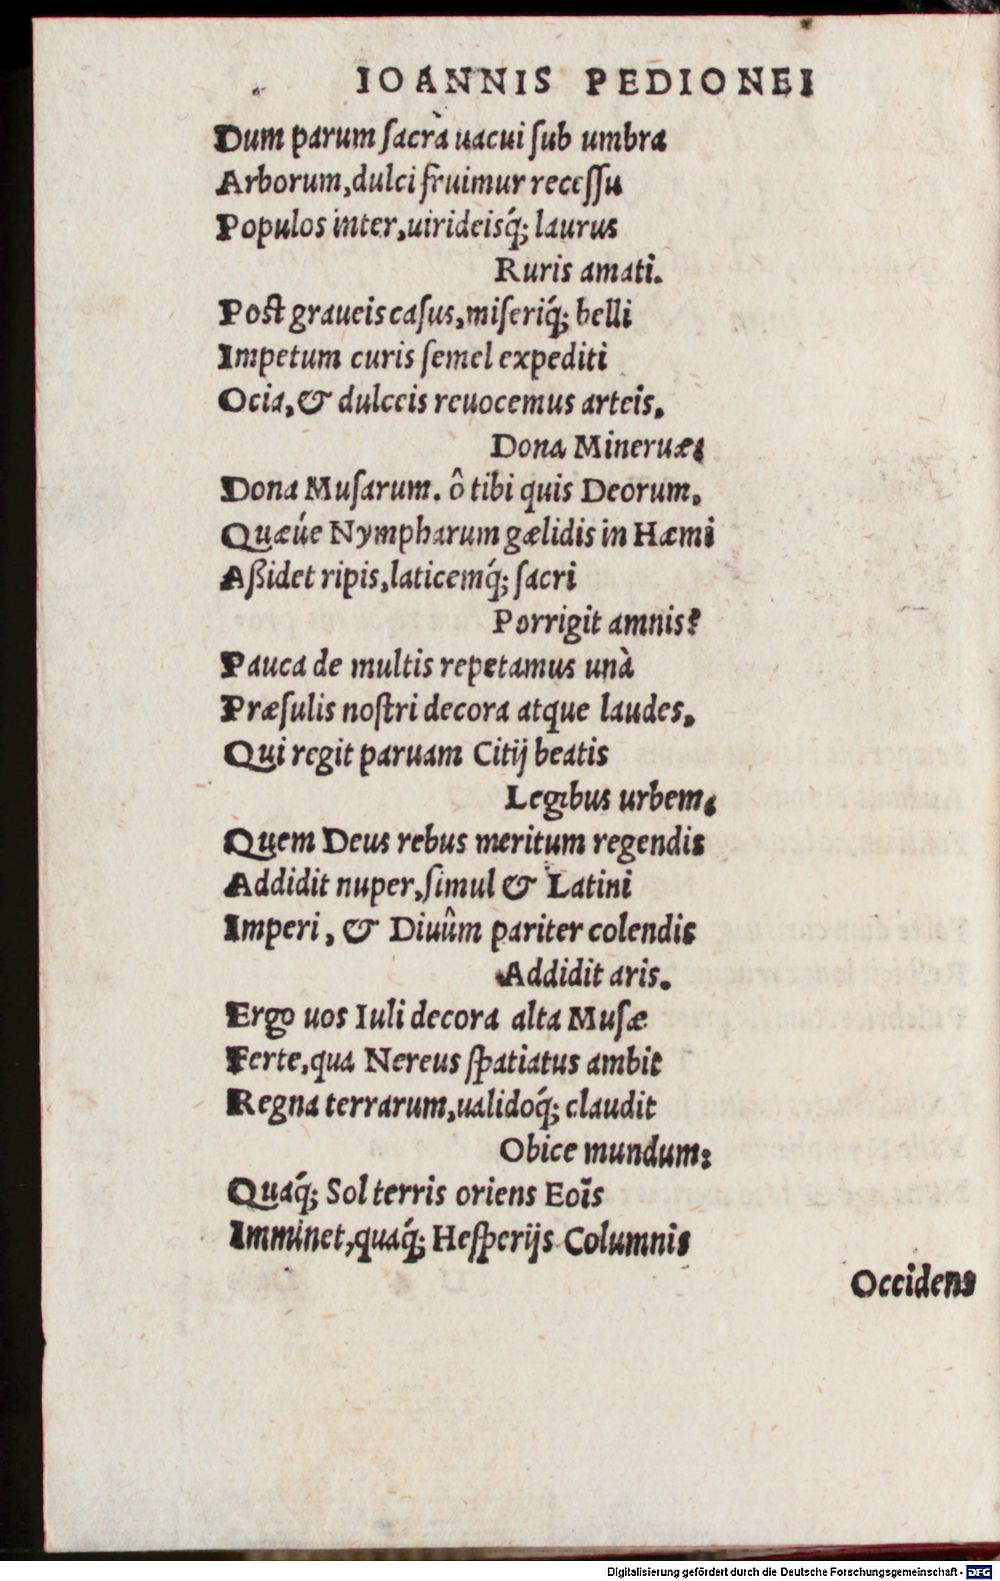 IOANNIS PEDIONEI
Dum parum sacrà uacui sub umbra
Arborum, dulci fruimur recessu
Populos inter, uirideisq́; laurus
Ruris amati.
Post graueis casus, miseriq́; belli
Impetum curis semel expediti
Ocia, & dulceis reuocemus arteis,
Dona Mineruæ;
Dona Musarum. ô tibi quis Deorum,
Quæúe Nympharum gælidis in Hæmi
Aßidet ripis, laticemq́; sacri
Porrigit amnis?
Pauca de multis repetamus unà
Præsulis nostri decora atque laudes,
Qui regit paruam Citij beatis
Legibus urbem;
Quem Deus rebus meritum regendis
Addidit nuper, simul & Latini
Imperi, & Diuûm pariter colendis
Addidit aris.
Ergo uos Iuli decora alta Musæ
Ferte, qua Nereus spatiatus ambit
Regna terrarum, ualidoq́; claudit
Obice mundum:
Quaq́; Sol terris oriens Eoîs
Imminet, quaq́; Hesperijs Columnis
Occidens
Digitalisierung gefördert durch die Deutsche Forschungsgemeinschaft - DFG